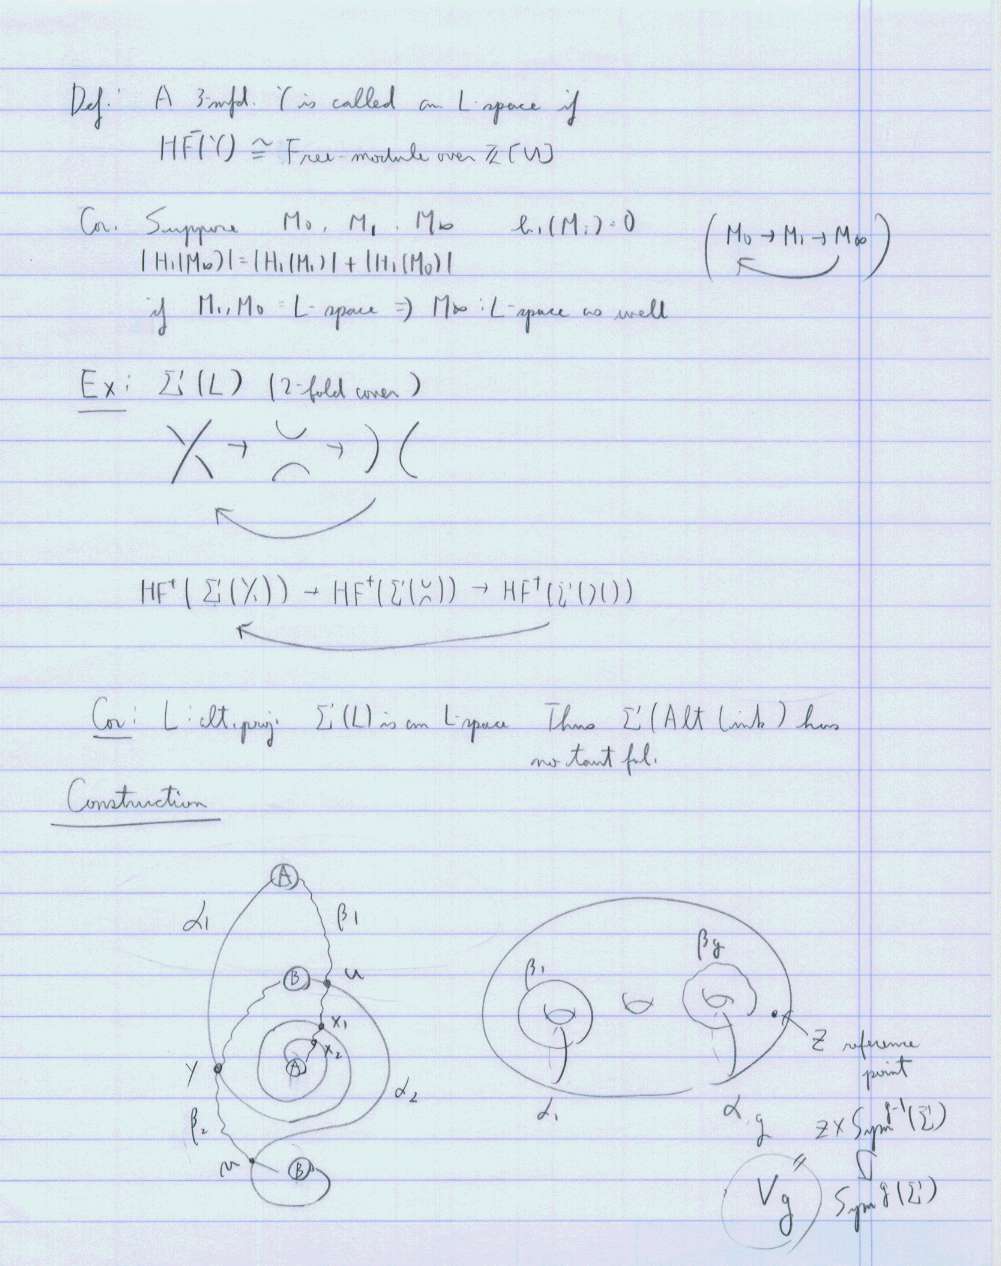 Def: A 3-mfd. Y is called an L-space if
HF⁻(Y) ≅ Free-module over ℤ[U]
Cor. Suppose M₀, M₁, M∞ b₁(Mᵢ)=0 (M₀ → M₁ → M∞)
|H₁(M∞)|=|H₁(M₁)|+|H₁(M₀)|
if M₁, M₀ = L-space ⇒ M∞ : L-space as well
Ex: Σ(L) (2-fold cover)
→ →
HF⁺(Σ( )) → HF⁺(Σ( )) → HF⁺(Σ()())
Cor: L: alt. proj. Σ(L) is an L-space Thus Σ(Alt Link) has
no taut fol.
Construction
A
α₁
β₁
B
u
x₁
x₂
A
y
α₂
β₂
v
B
β₁
βg
Z reference
point
α₁
αg
Z × Symᵍ⁻¹(Σ)
Vg
Symᵍ(Σ)